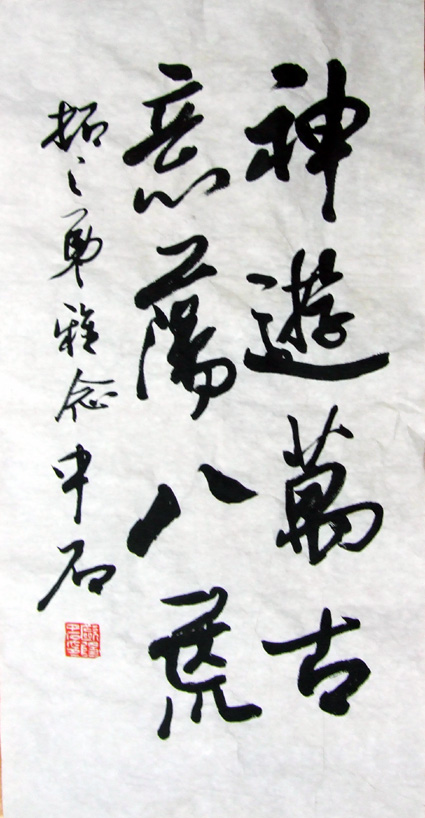 神遊萬古
意蕩八荒
拓之弟雅念中石